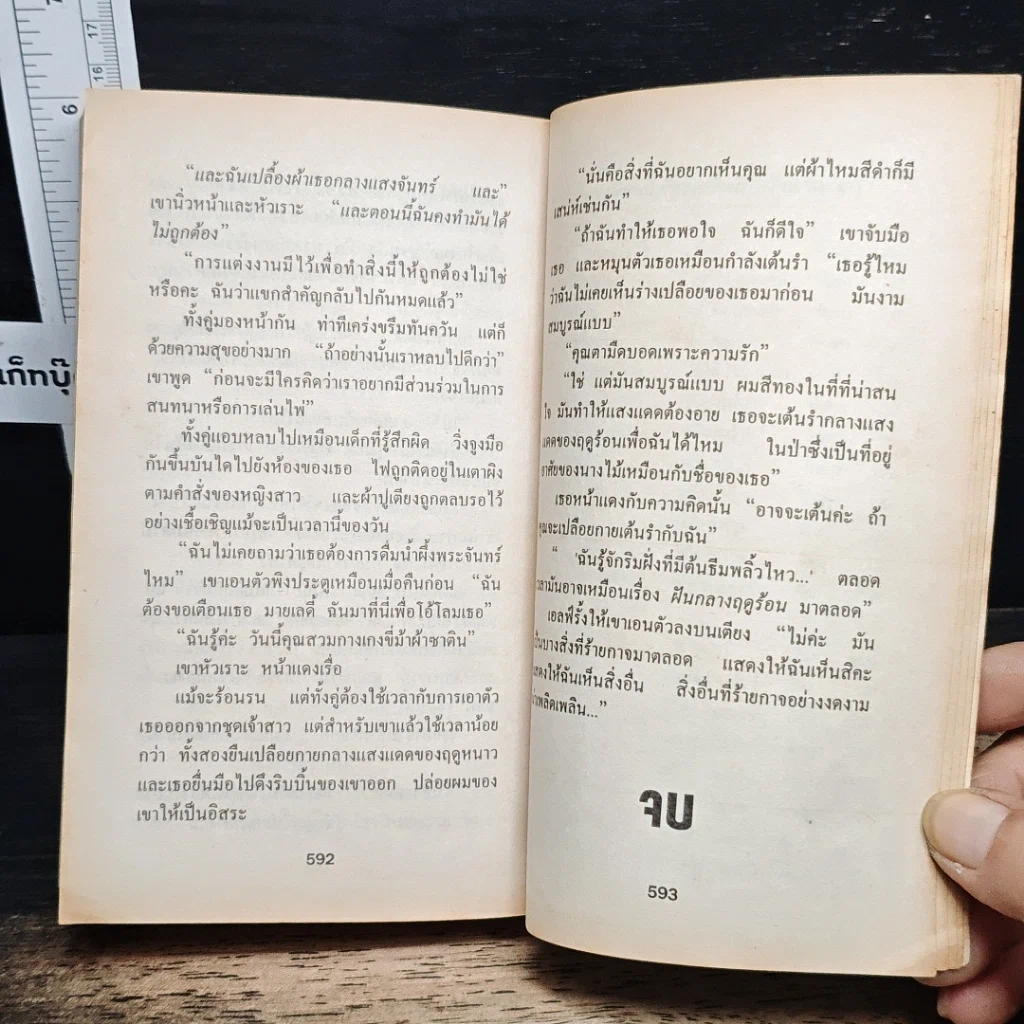 7
17
16
6
เก็ทบุ๊
“และฉันเปลื้องผ้าเธอกลางแสงจันทร์ และ”
เขานิ่วหน้าและหัวเราะ “และตอนนี้ฉันคงทำมันได้
ไม่ถูกต้อง”
“การแต่งงานมีไว้เพื่อทำสิ่งนี้ให้ถูกต้องไม่ใช่
หรือคะ ฉันว่าแขกสำคัญกลับไปกันหมดแล้ว”
ทั้งคู่มองหน้ากัน ท่าทีเคร่งขรึมทันควัน แต่ก็
ด้วยความสุขอย่างมาก “ถ้าอย่างนั้นเราหลบไปดีกว่า”
เขาพูด “ก่อนจะมีใครคิดว่าเราอยากมีส่วนร่วมในการ
สนทนาหรือการเล่นไพ่”
ทั้งคู่แอบหลบไปเหมือนเด็กที่รู้สึกผิด วิ่งจูงมือ
กันขึ้นบันไดไปยังห้องของเธอ ไฟถูกติดอยู่ในเตาผิง
ตามคำสั่งของหญิงสาว และผ้าปูเตียงถูกตลบรอไว้
อย่างเชื้อเชิญแม้จะเป็นเวลานี้ของวัน
“ฉันไม่เคยถามว่าเธอต้องการดื่มน้ำผึ้งพระจันทร์
ไหม” เขาเอนตัวพิงประตูเหมือนเมื่อคืนก่อน “ฉัน
ต้องขอเตือนเธอ มายเลดี้ ฉันมาที่นี่เพื่อโอ้โลมเธอ”
“ฉันรู้ค่ะ วันนี้คุณสวมกางเกงขี่ม้าผ้าซาติน”
เขาหัวเราะ หน้าแดงเรื่อ
แม้จะร้อนรน แต่ทั้งคู่ต้องใช้เวลากับการเอาตัว
เธอออกจากชุดเจ้าสาว แต่สำหรับเขาแล้วใช้เวลาน้อย
กว่า ทั้งสองยืนเปลือยกายกลางแสงแดดของฤดูหนาว
และเธอยื่นมือไปดึงริบบิ้นของเขาออก ปล่อยผมของ
เขาให้เป็นอิสระ
592
“นั่นคือสิ่งที่ฉันอยากเห็นคุณ แต่ผ้าไหมสีดำก็มี
เสน่ห์เช่นกัน”
“ถ้าฉันทำให้เธอพอใจ ฉันก็ดีใจ” เขาจับมือ
เธอ และหมุนตัวเธอเหมือนกำลังเต้นรำ “เธอรู้ไหม
ว่าฉันไม่เคยเห็นร่างเปลือยของเธอมาก่อน มันงาม
สมบูรณ์แบบ”
“คุณตามืดบอดเพราะความรัก”
“ใช่ แต่มันสมบูรณ์แบบ ผมสีทองในที่ที่น่าสน
ใจ มันทำให้แสงแดดต้องอาย เธอจะเต้นรำกลางแสง
แดดของฤดูร้อนเพื่อฉันได้ไหม ในป่าซึ่งเป็นที่อยู่
อาศัยของนางไม้เหมือนกับชื่อของเธอ”
เธอหน้าแดงกับความคิดนั้น “อาจจะเต้นค่ะ ถ้า
คุณจะเปลือยกายเต้นรำกับฉัน”
“ 'ฉันรู้จักริมฝั่งที่มีต้นธีมพลิ้วไหว...' ตลอด
เวลามันอาจเหมือนเรื่อง ฝันกลางฤดูร้อน มาตลอด”
เอลฟ์รั้งให้เขาเอนตัวลงบนเตียง “ไม่ค่ะ มัน
เป็นบางสิ่งที่ร้ายกาจมาตลอด แสดงให้ฉันเห็นสิคะ
แสดงให้ฉันเห็นสิ่งอื่น สิ่งอื่นที่ร้ายกาจอย่างงดงาม
น่าเพลิดเพลิน...”
จบ
593